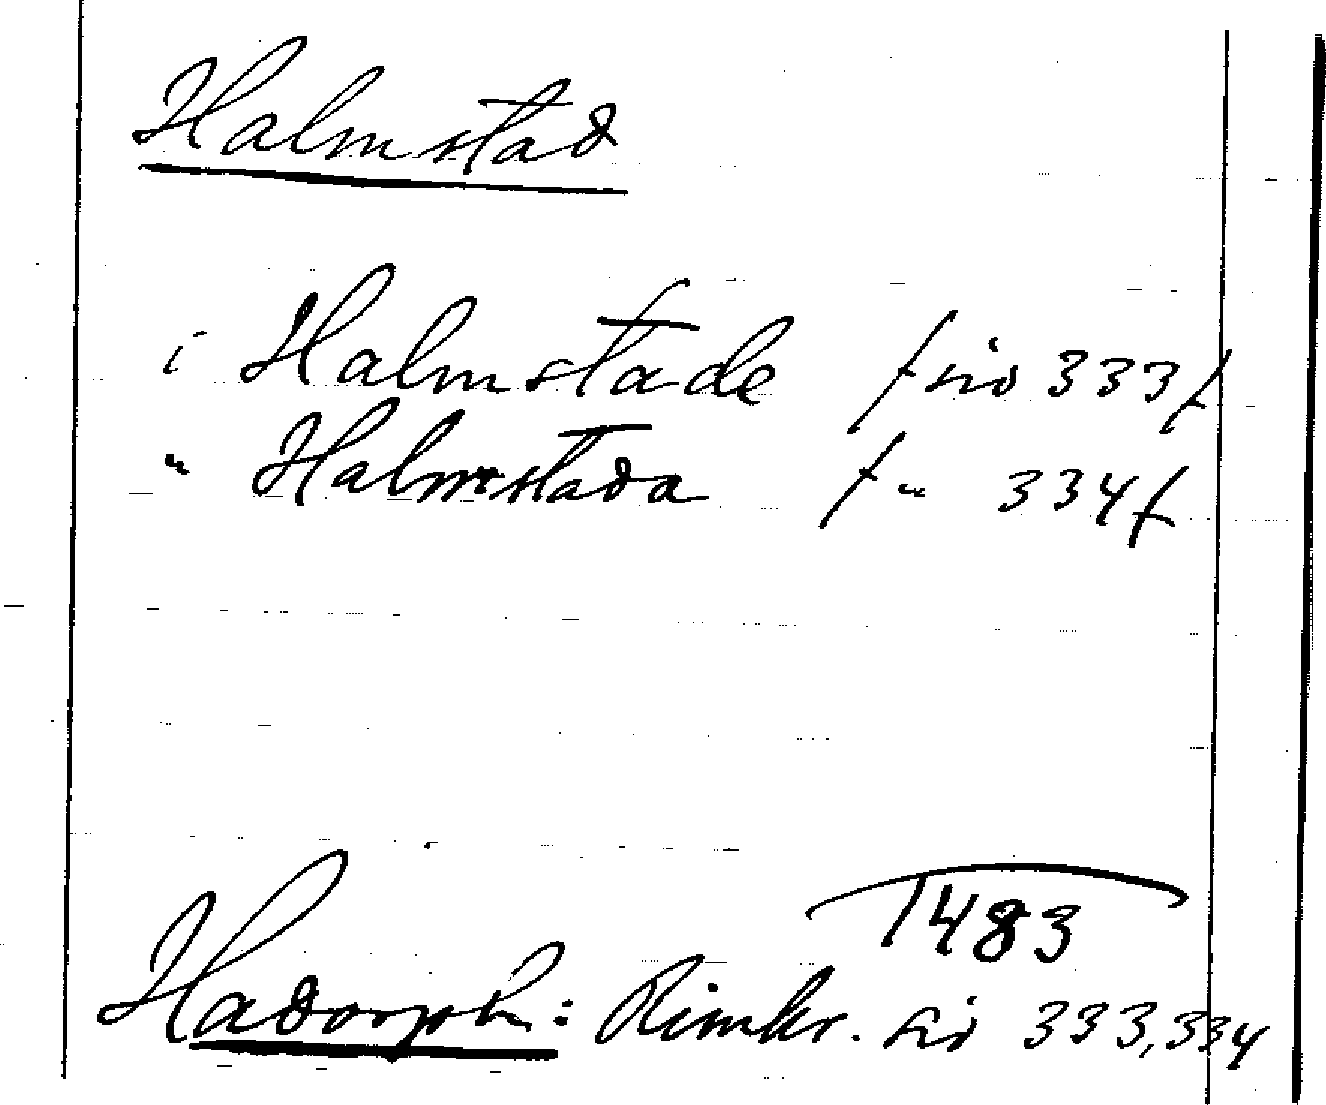 Halmstad
i Halmstade /: sid 333 :/
" Halmstada /: " 334 :/
1483
Hadorph: Rimkr. sid 333, 334